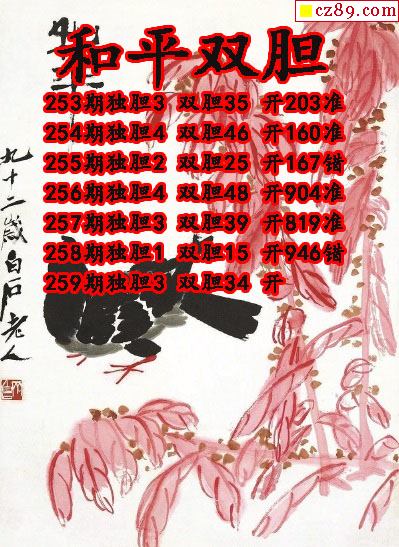 cz89.com
和平双胆
253期独胆3 双胆35 开203准
254期独胆4 双胆46 开160准
255期独胆2 双胆25 开167错
256期独胆4 双胆48 开904准
257期独胆3 双胆39 开819准
258期独胆1 双胆15 开946错
259期独胆3 双胆34 开
九十二岁白石老人